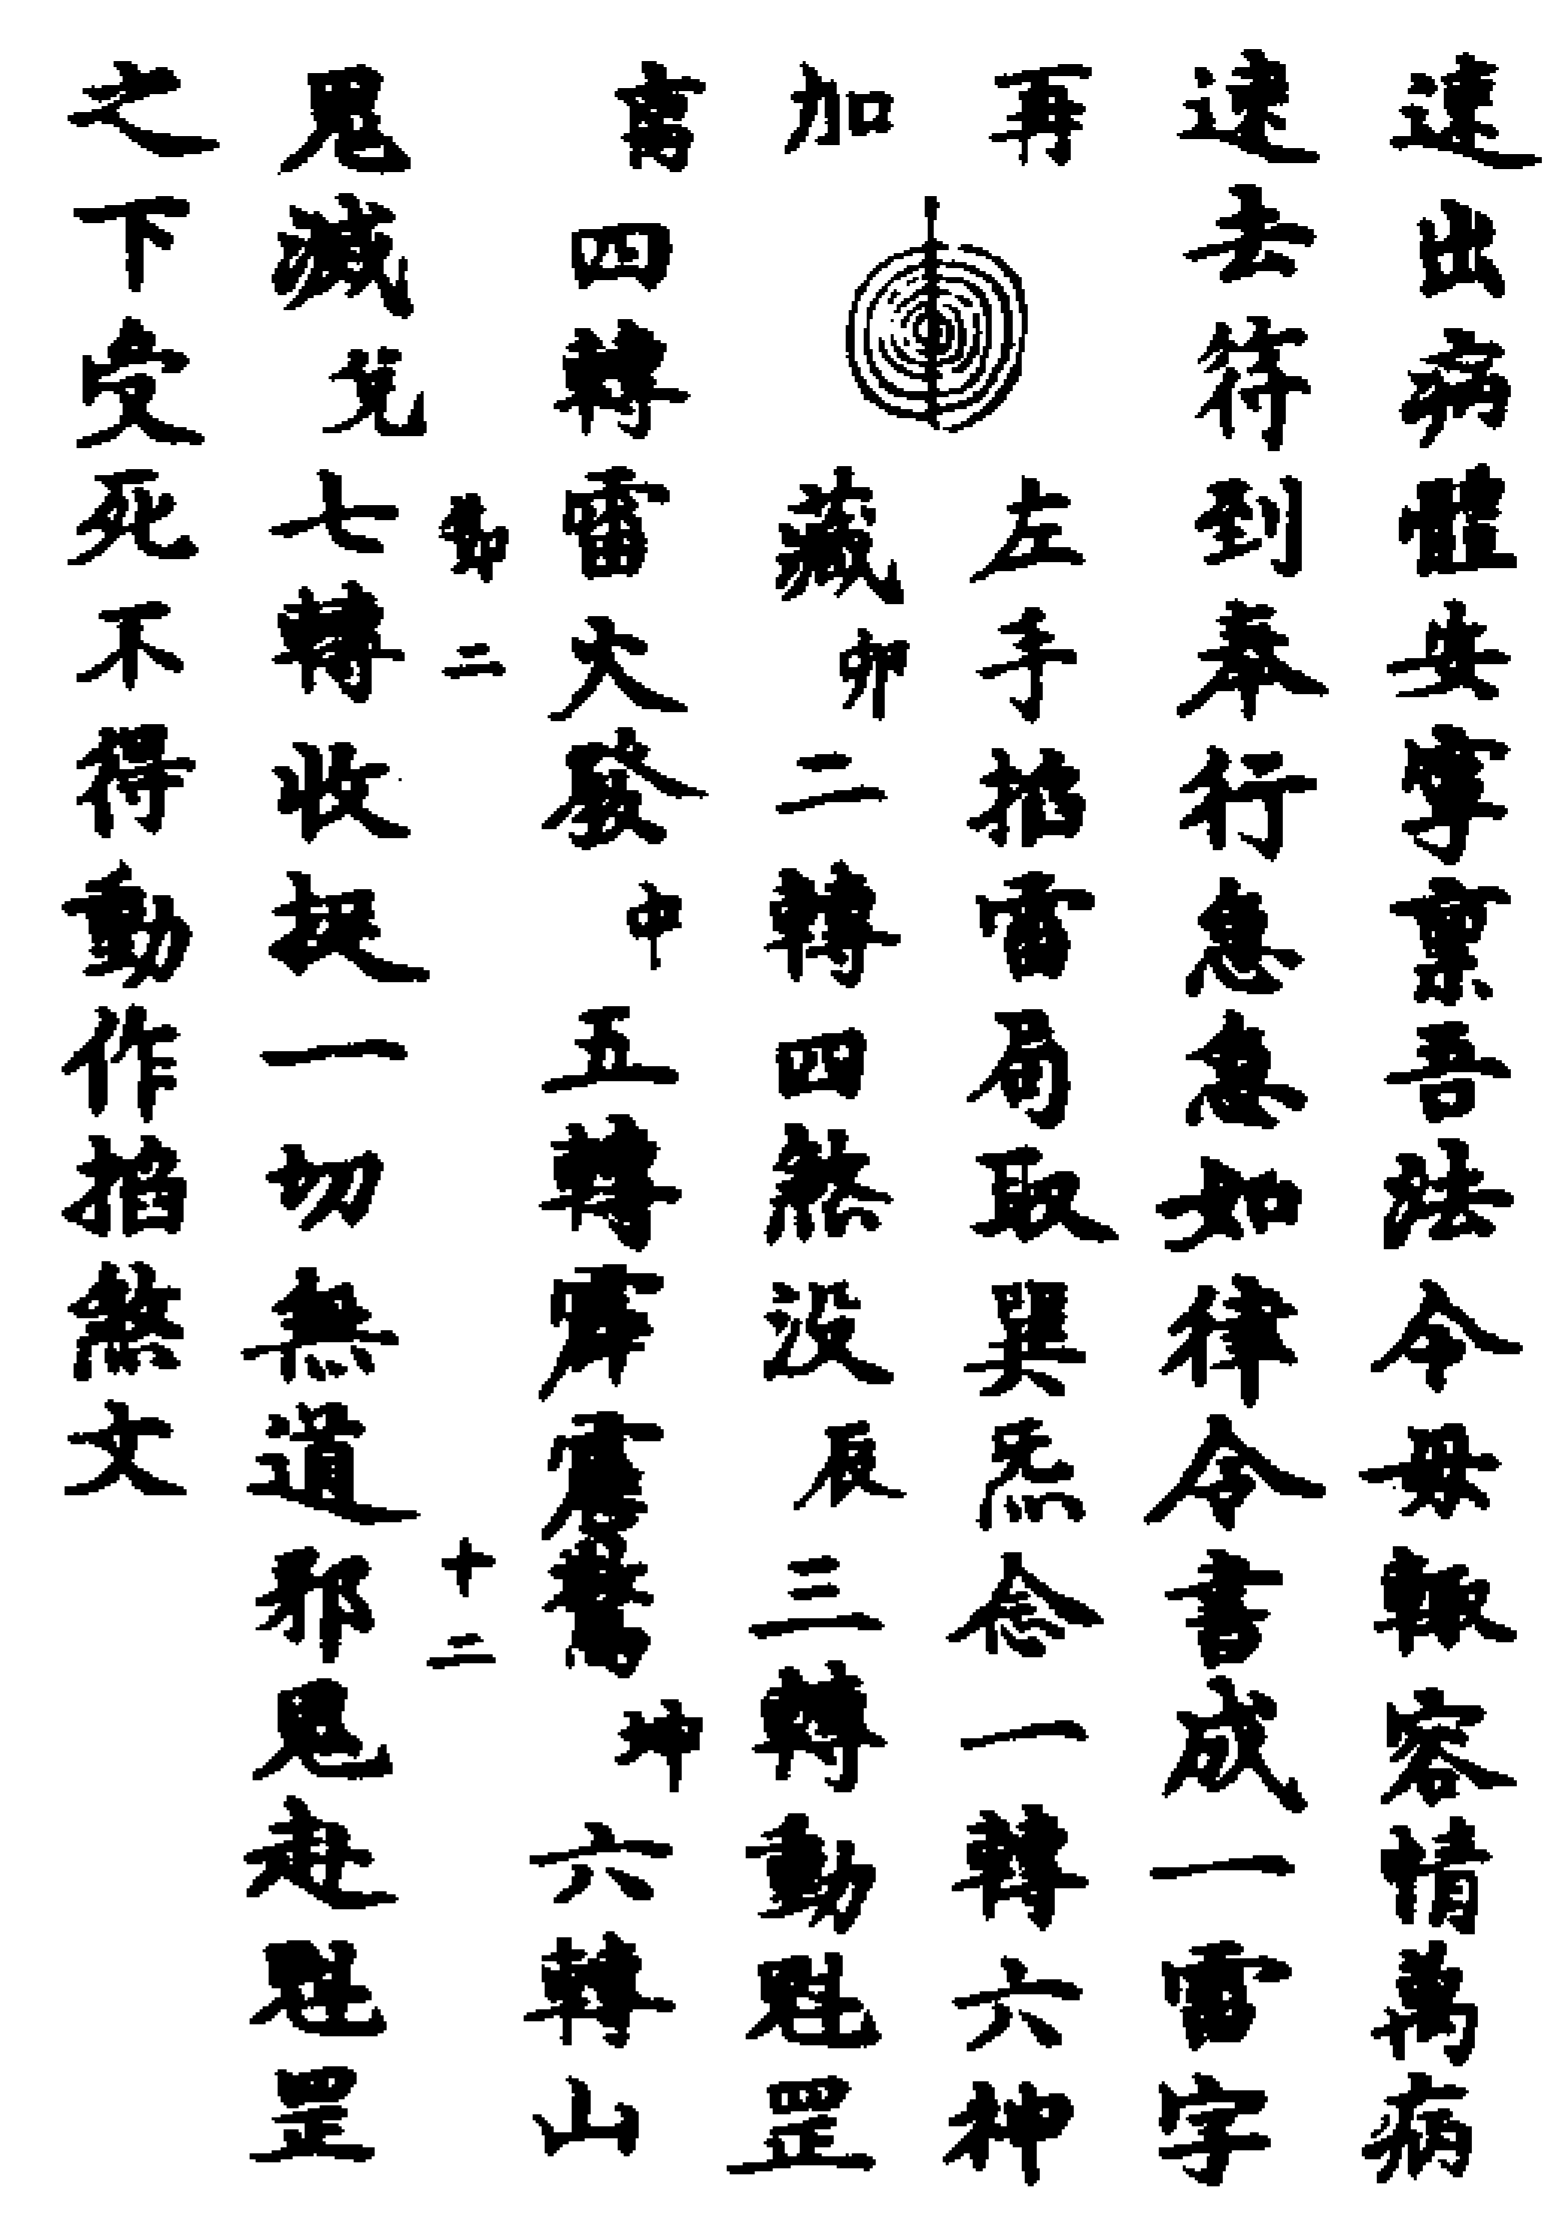 速出病體安寧稟吾法令毋輙容情萬病
速去符到奉行急急如律令書成一雷字
再左手掐雷局取巽炁念一轉六神
加藏卯二轉四煞沒辰三轉動魁罡
离四轉雷火發中五轉霹靂驚坤六轉山
鄧二十二
鬼滅兌七轉收捉一切無道邪鬼赴魁罡
之下受死不得動作掐煞文